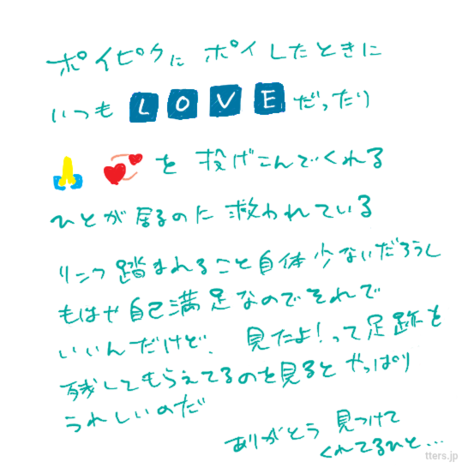 ポイピクに ポイしたときに
いつも LOVE だったり
🙏 💞 を 投げこんでくれる
ひとが居るのに 救われている
リンク踏まれること自体少ないだろうし
もはや自己満足なのでそれで
いいんだけど、見たよ!って足跡を
残してもらえてるのを見ると やっぱり
うれしいのだ
ありがとう 見つけて
くれてるひと…
tters.jp